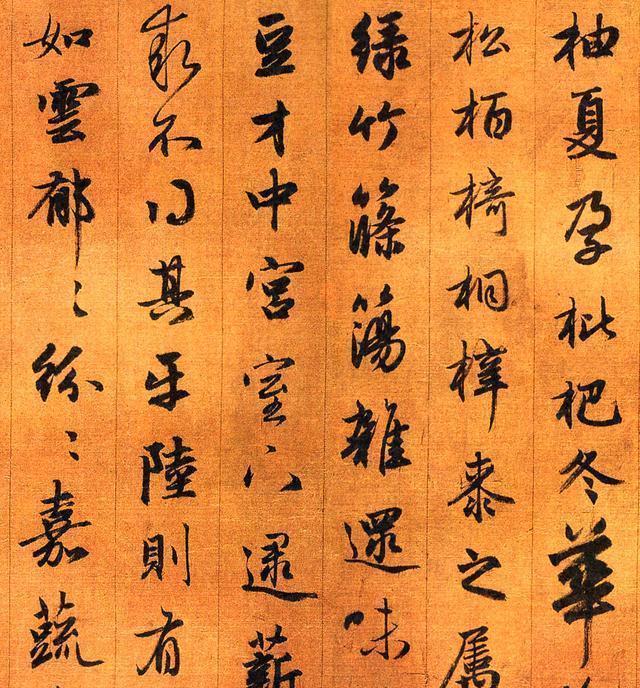 柚夏孕枇杷冬華
松栢椅桐梓桼之属
緑竹篠簜雜遝味
豆才中宮室下逮薪
求不得其平陸則有
如雲郁〻紛〻嘉蔬